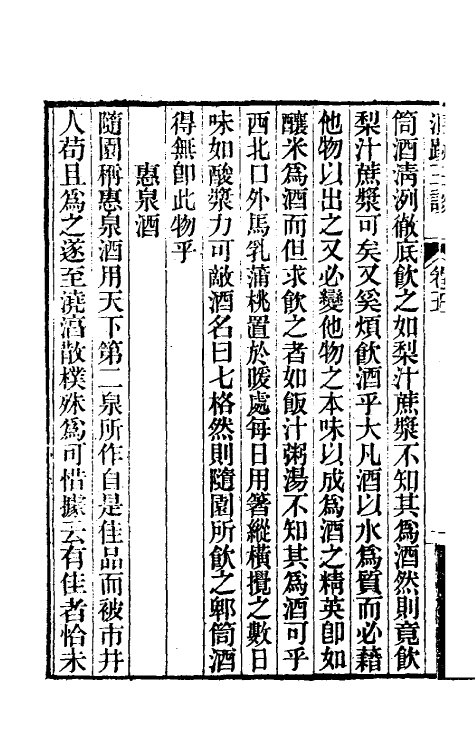 筒酒清冽徹底飲之如梨汁蔗漿不知其為酒然則竟飲
梨汁蔗漿可矣又奚煩飲酒乎大凡酒以水為質而必藉
他物以出之又必變他物之本味以成為酒之精英卽如
釀米為酒而但求飲之者如飯汁粥湯不知其為酒可乎
西北口外馬乳蒲桃置於暖處每日用箸縱橫攪之數日
味如酸漿力可敵酒名曰七格然則隨園所飲之郫筒酒
得無卽此物乎
惠泉酒
隨園稱惠泉酒用天下第二泉所作自是佳品而被市井
人苟且為之遂至澆漓散樸殊為可惜據云有佳者恰未